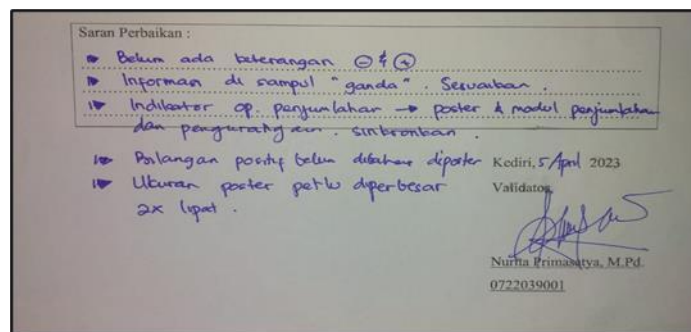 Saran Perbaikan :
Belum ada keterangan ⊖ & ⊕
Informasi di sampul "ganda". Sesuaikan.
Indikator op. penjumlahan → poster & modul penjumlahan
dan pengurangan. sinkronkan.
Bilangan positif belum dibahas diposter
Kediri, 5 April 2023
Ukuran poster perlu diperbesar
Validator,
2x lipat.
Nurita Primasatya, M.Pd.
0722039001